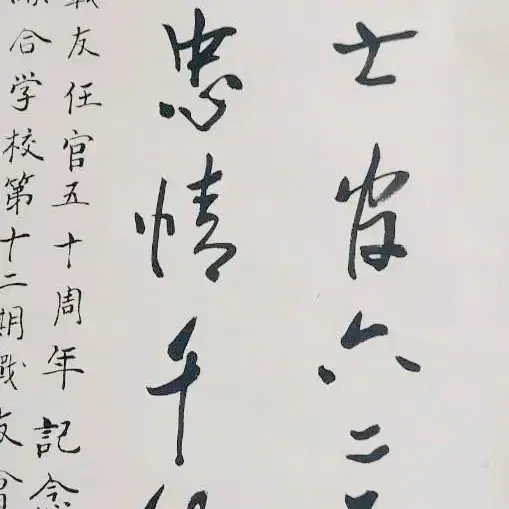 士官六二
忠情千
戰友任官五十周年記念
合学校第十二期戰友會